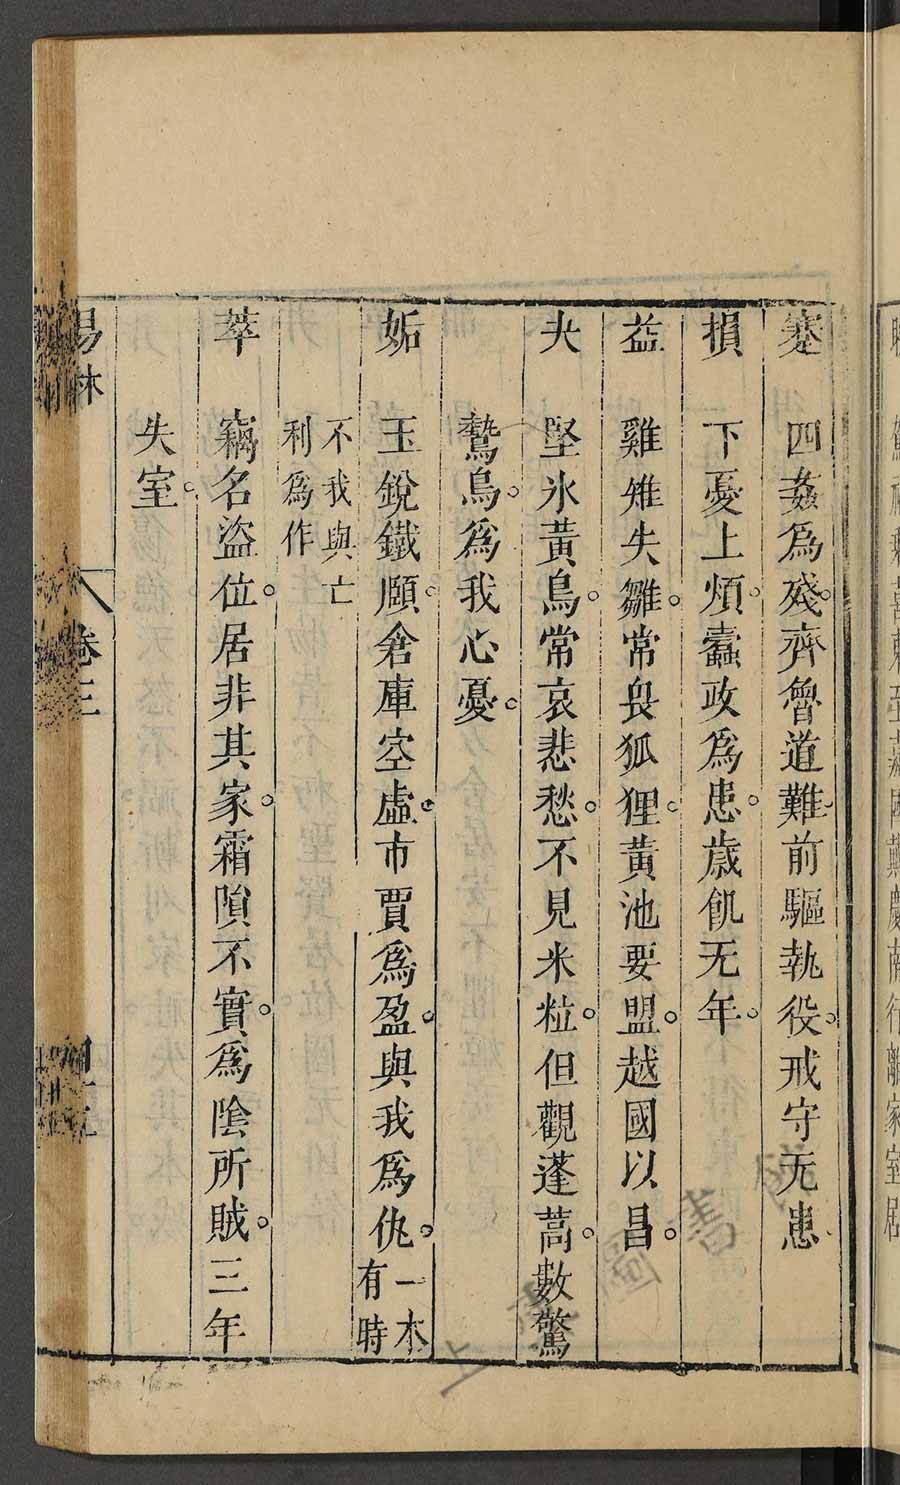 蹇　四姦爲殘。齊魯道難。前驅執役。戒守无患
損　下憂上煩。蠹政爲患。歲飢无年。
益　雞雉失雛。常畏狐狸。黃池要盟。越國以昌。
夬　堅冰黃鳥。常哀悲愁。不見米粒。但觀蓬蒿。數驚
鷙鳥。爲我心憂。
姤　玉銳鐵頤。倉庫空虛。市賈爲盈。與我爲仇。一本有時
不我與亡利爲作
萃　竊名盜位。居非其家。霜隕不實。爲陰所賊。三年
失室。
易林　卷三